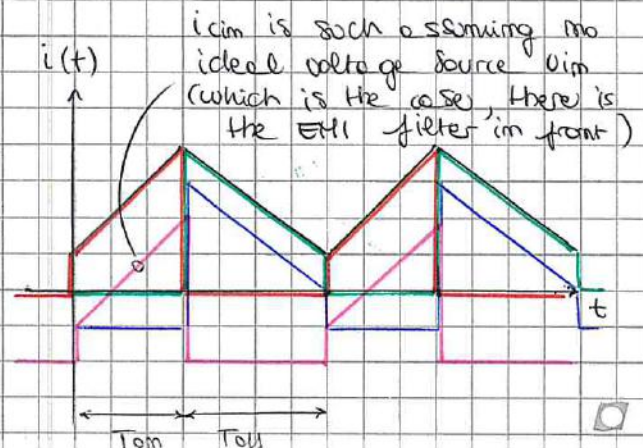 icin is such assuming no
i(t)
ideal voltage source vin
(which is the case, there is
the EMI filter in front)
t
Ton
Toff